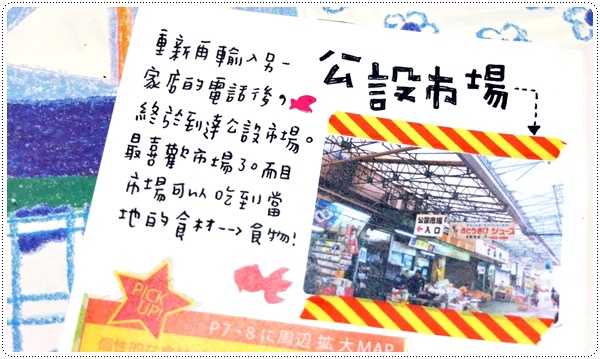 重新再輸入另一
家店的電話後，
終於到達公設市場。
最喜歡市場了。而且
市場可以吃到當
地的食材--->食物!
公設市場
公設市場
入口
さとうきびジュース
PICK
UP!
P7・8に周辺拡大MAP
個性的な